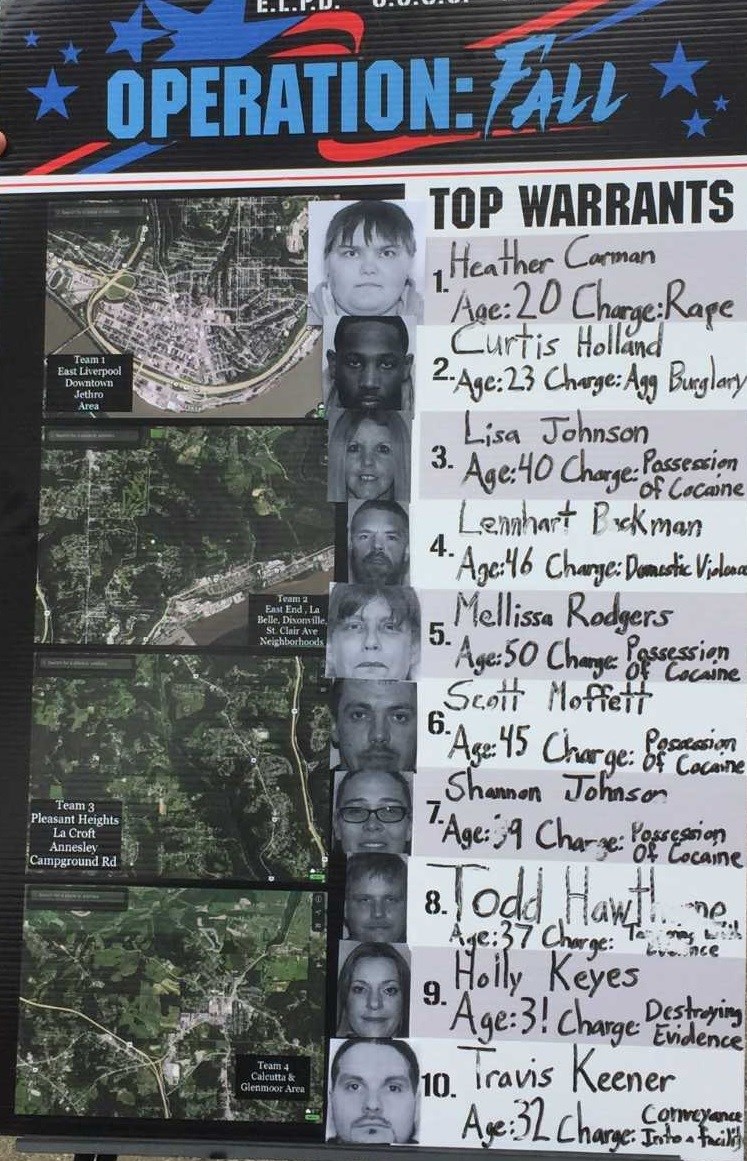 E.L.P.D.
OPERATION: FALL
TOP WARRANTS
Team 1
East Liverpool
Downtown
Jethro
Area
Team 2
East End, La
Belle, Dixonville,
St. Clair Ave
Neighborhoods
Team 3
Pleasant Heights
La Croft
Annesley
Campground Rd
Team 4
Calcutta &
Glenmoor Area
1. Heather Carman
Age:20 Charge:Rape
2. Curtis Holland
Age:23 Charge:Agg Burglary
3. Lisa Johnson
Age:40 Charge: Possession
of Cocaine
4. Lennhart
Age:46 Charge: Domestic Violence
5. Mellissa Rodgers
Age:50 Charge: Possession
Of Cocaine
6. Scott Moffett
Age:45 Charge: Possession
Of Cocaine
7. Shannon Johnson
Age: Charge: Possession
Of Cocaine
8. Todd
Age:37 Charge:
9. Holly Keyes
Age:31 Charge: Destroying
Evidence
10. Travis Keener
Age:32 Charge: Conveyance
Into a Facility